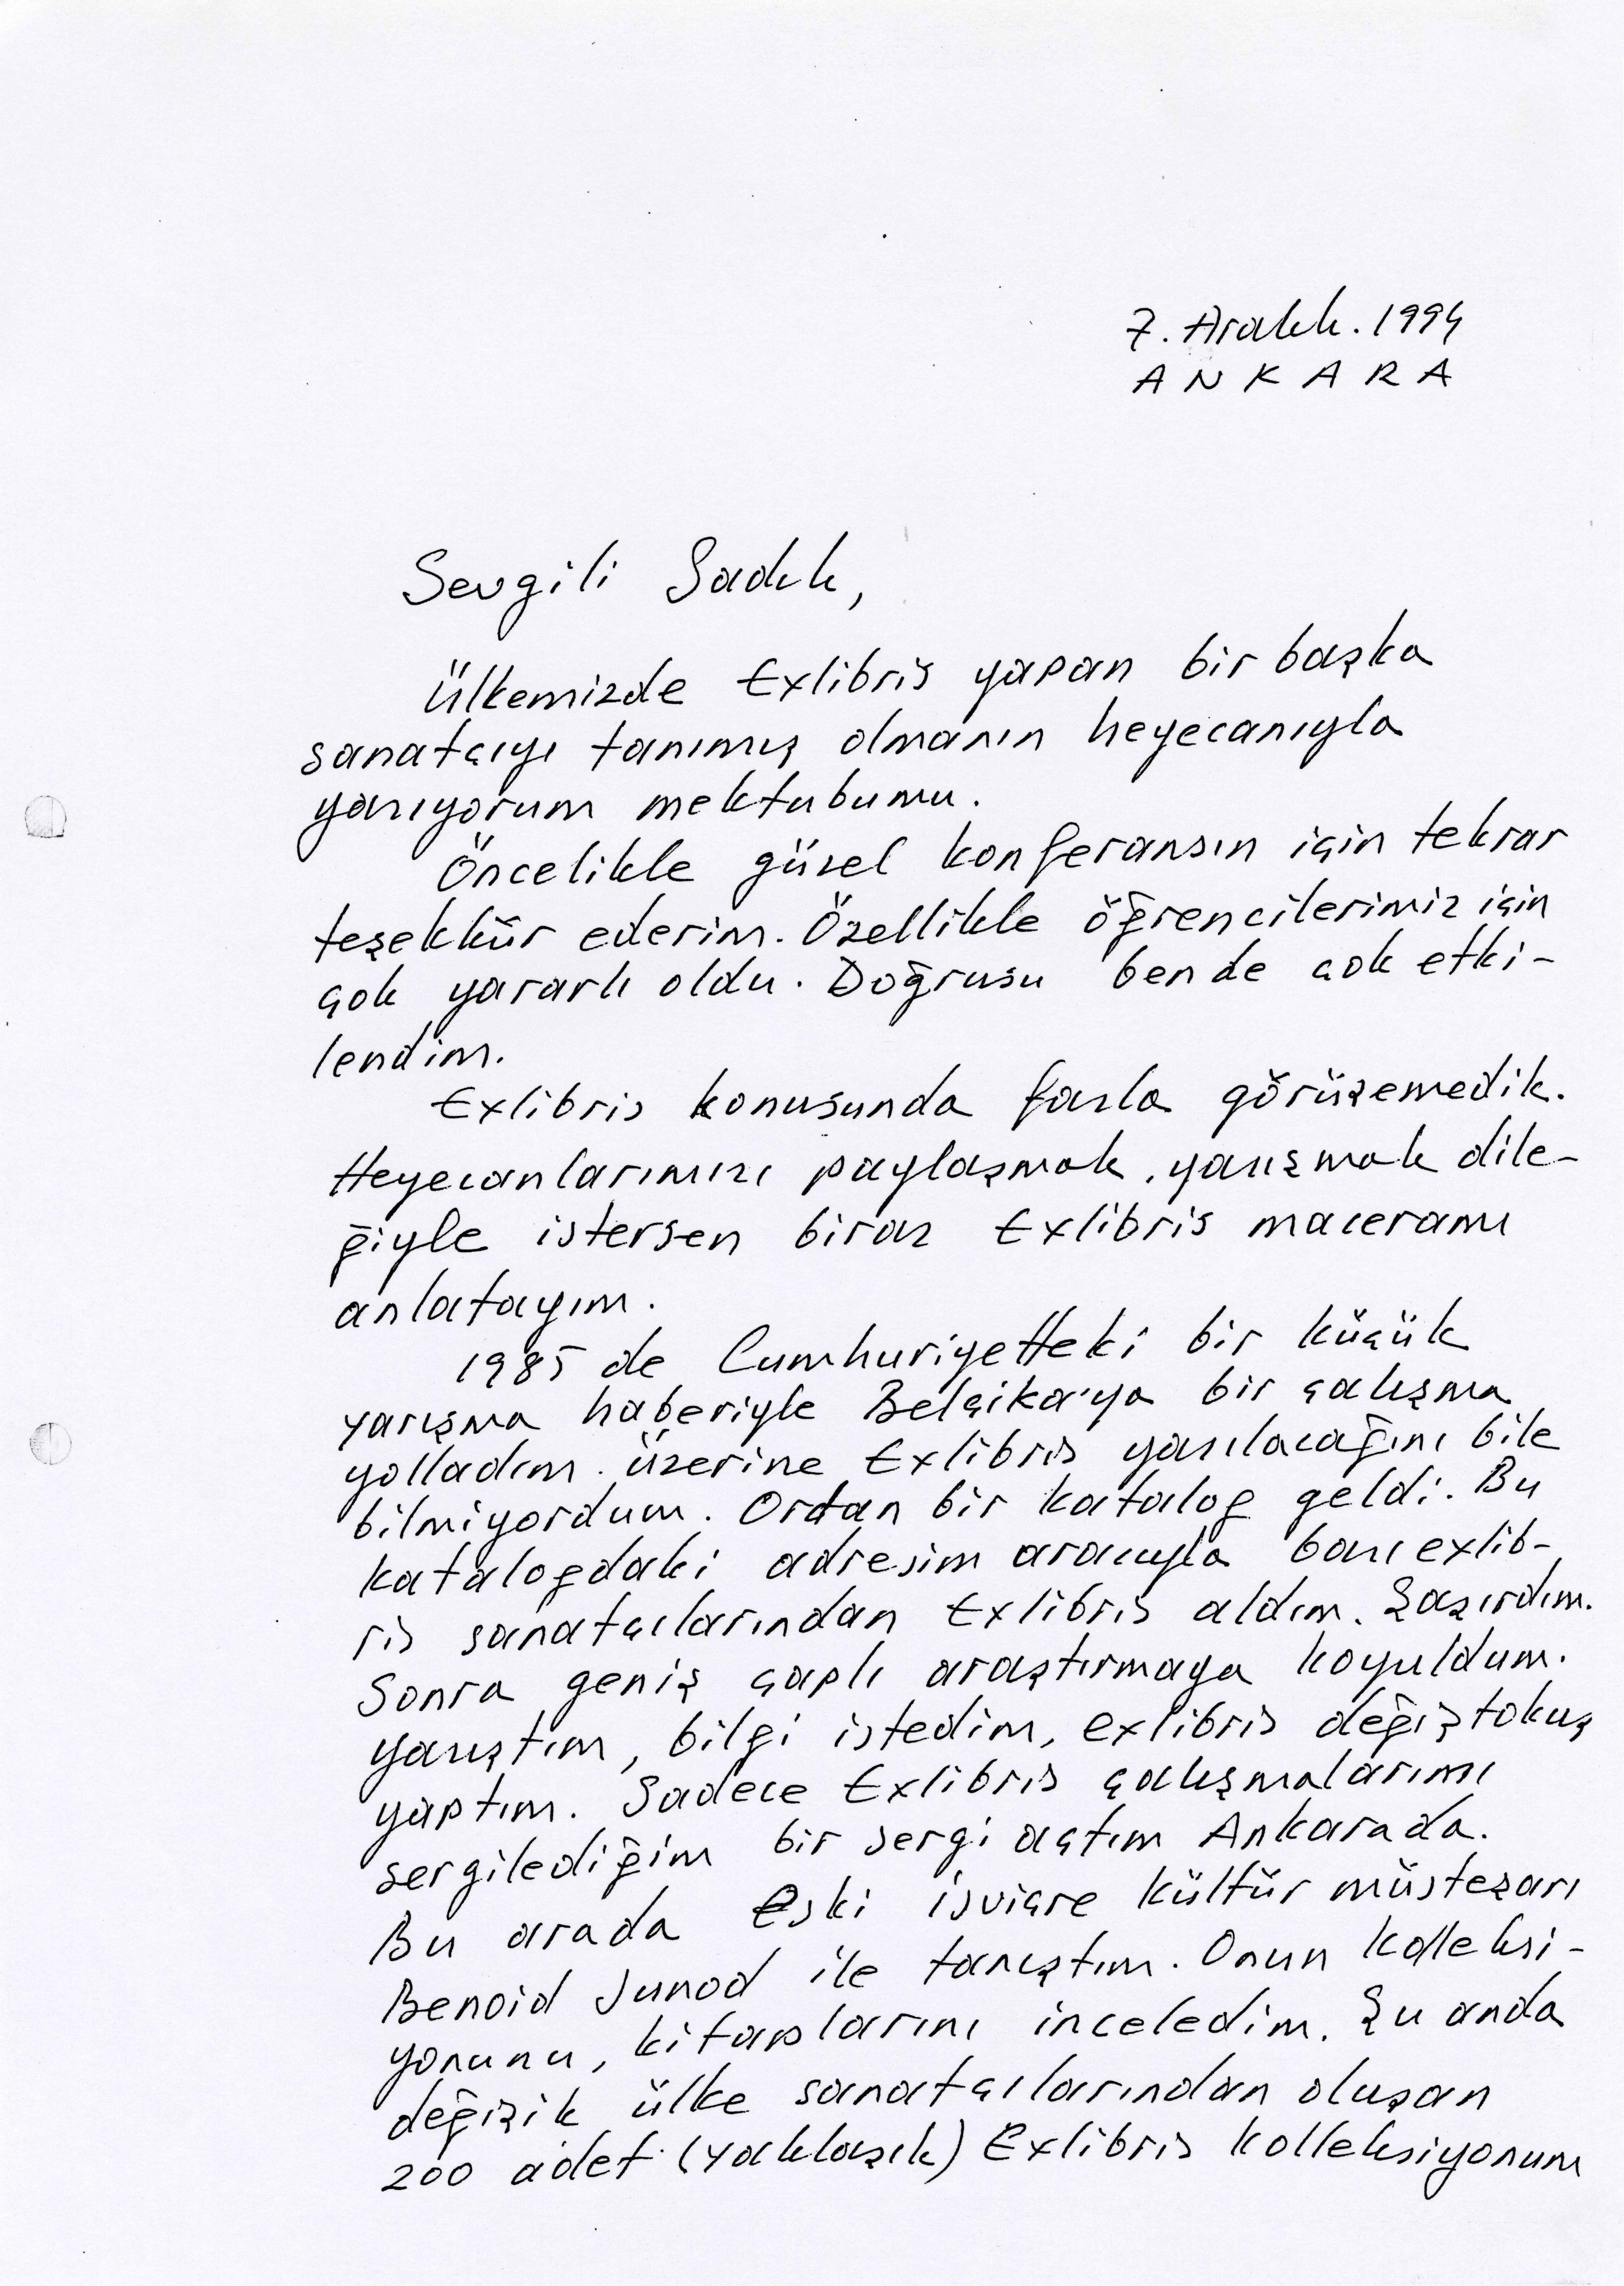 7. Aralık. 1994
ANKARA
Sevgili Sadık,
Ülkemizde Exlibris yapan bir başka
sanatçıyı tanımış olmanın heyecanıyla
yazıyorum mektubumu.
Öncelikle güzel konferansın için tekrar
teşekkür ederim. Özellikle öğrencilerimiz için
çok yararlı oldu. Doğrusu bende çok etki-
lendim.
Exlibris konusunda fazla görüşemedik.
Heyecanlarımızı paylaşmak, yazışmak dile-
ğiyle istersen biraz Exlibris maceramı
anlatayım.
1985 de Cumhuriyetteki bir küçük
yarışma haberiyle Belçika'ya bir çalışma
yolladım. üzerine Exlibris yazılacağını bile
bilmiyordum. Ordan bir katalog geldi. Bu
katalogdaki adresim aracıyla bazı exlib-
ris sanatçılarından Exlibris aldım. Şaşırdım.
Sonra geniş çaplı araştırmaya koyuldum.
yazıştım, bilgi istedim, exlibris değiştokuş
yaptım. Sadece Exlibris çalışmalarımı
sergilediğim bir sergi açtım Ankarada.
Bu arada Eski isviçre kültür müsteşarı
Benoid Junod ile tanıştım. Onun kolleksi-
yonunu, kitaplarını inceledim. Şu anda
değişik ülke sanatçılarından oluşan
200 adet (yaklaşık) Exlibris kolleksiyonum